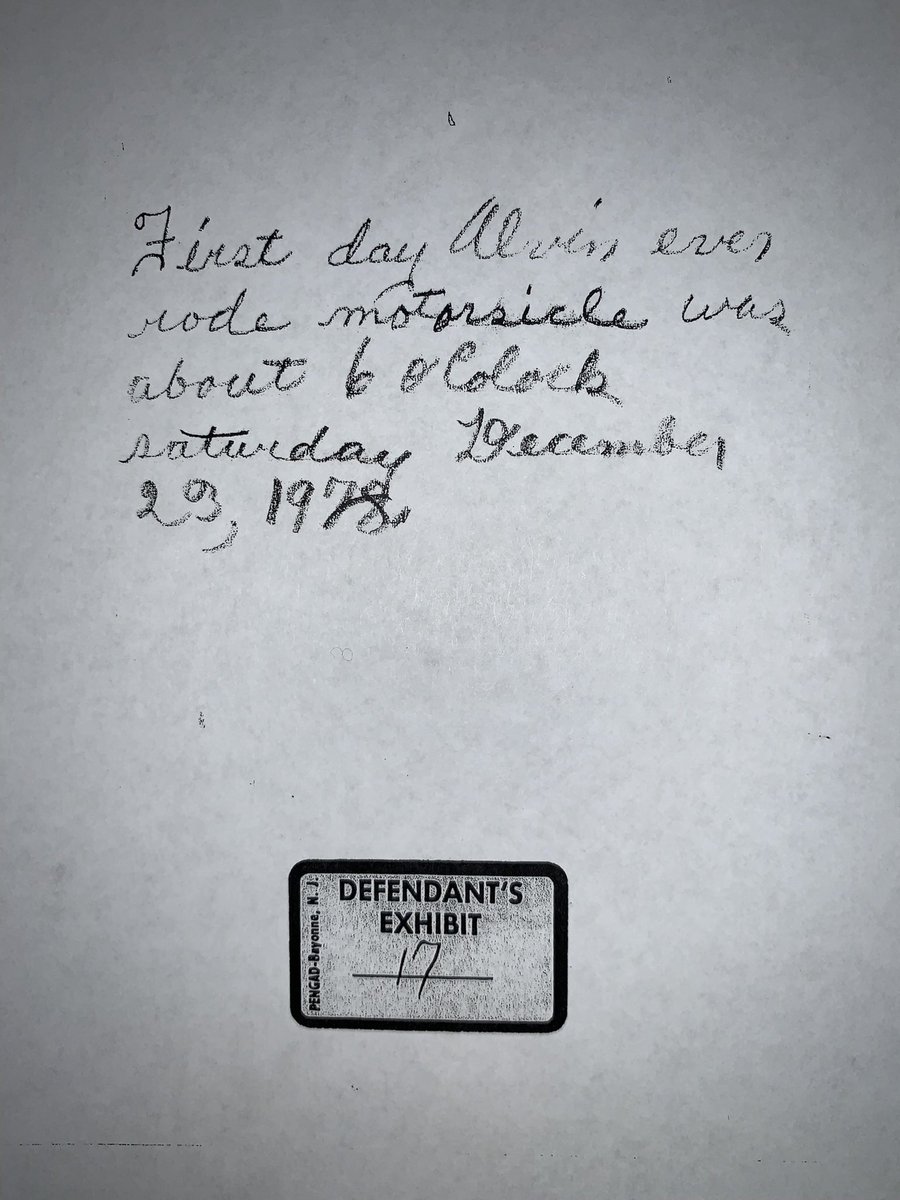 First day Alvin ever
rode motorsicle was
about 6 o'Colock
saturday December
23, 1978.
DEFENDANT'S
EXHIBIT
17
PENGAD-Bayonne, N. J.